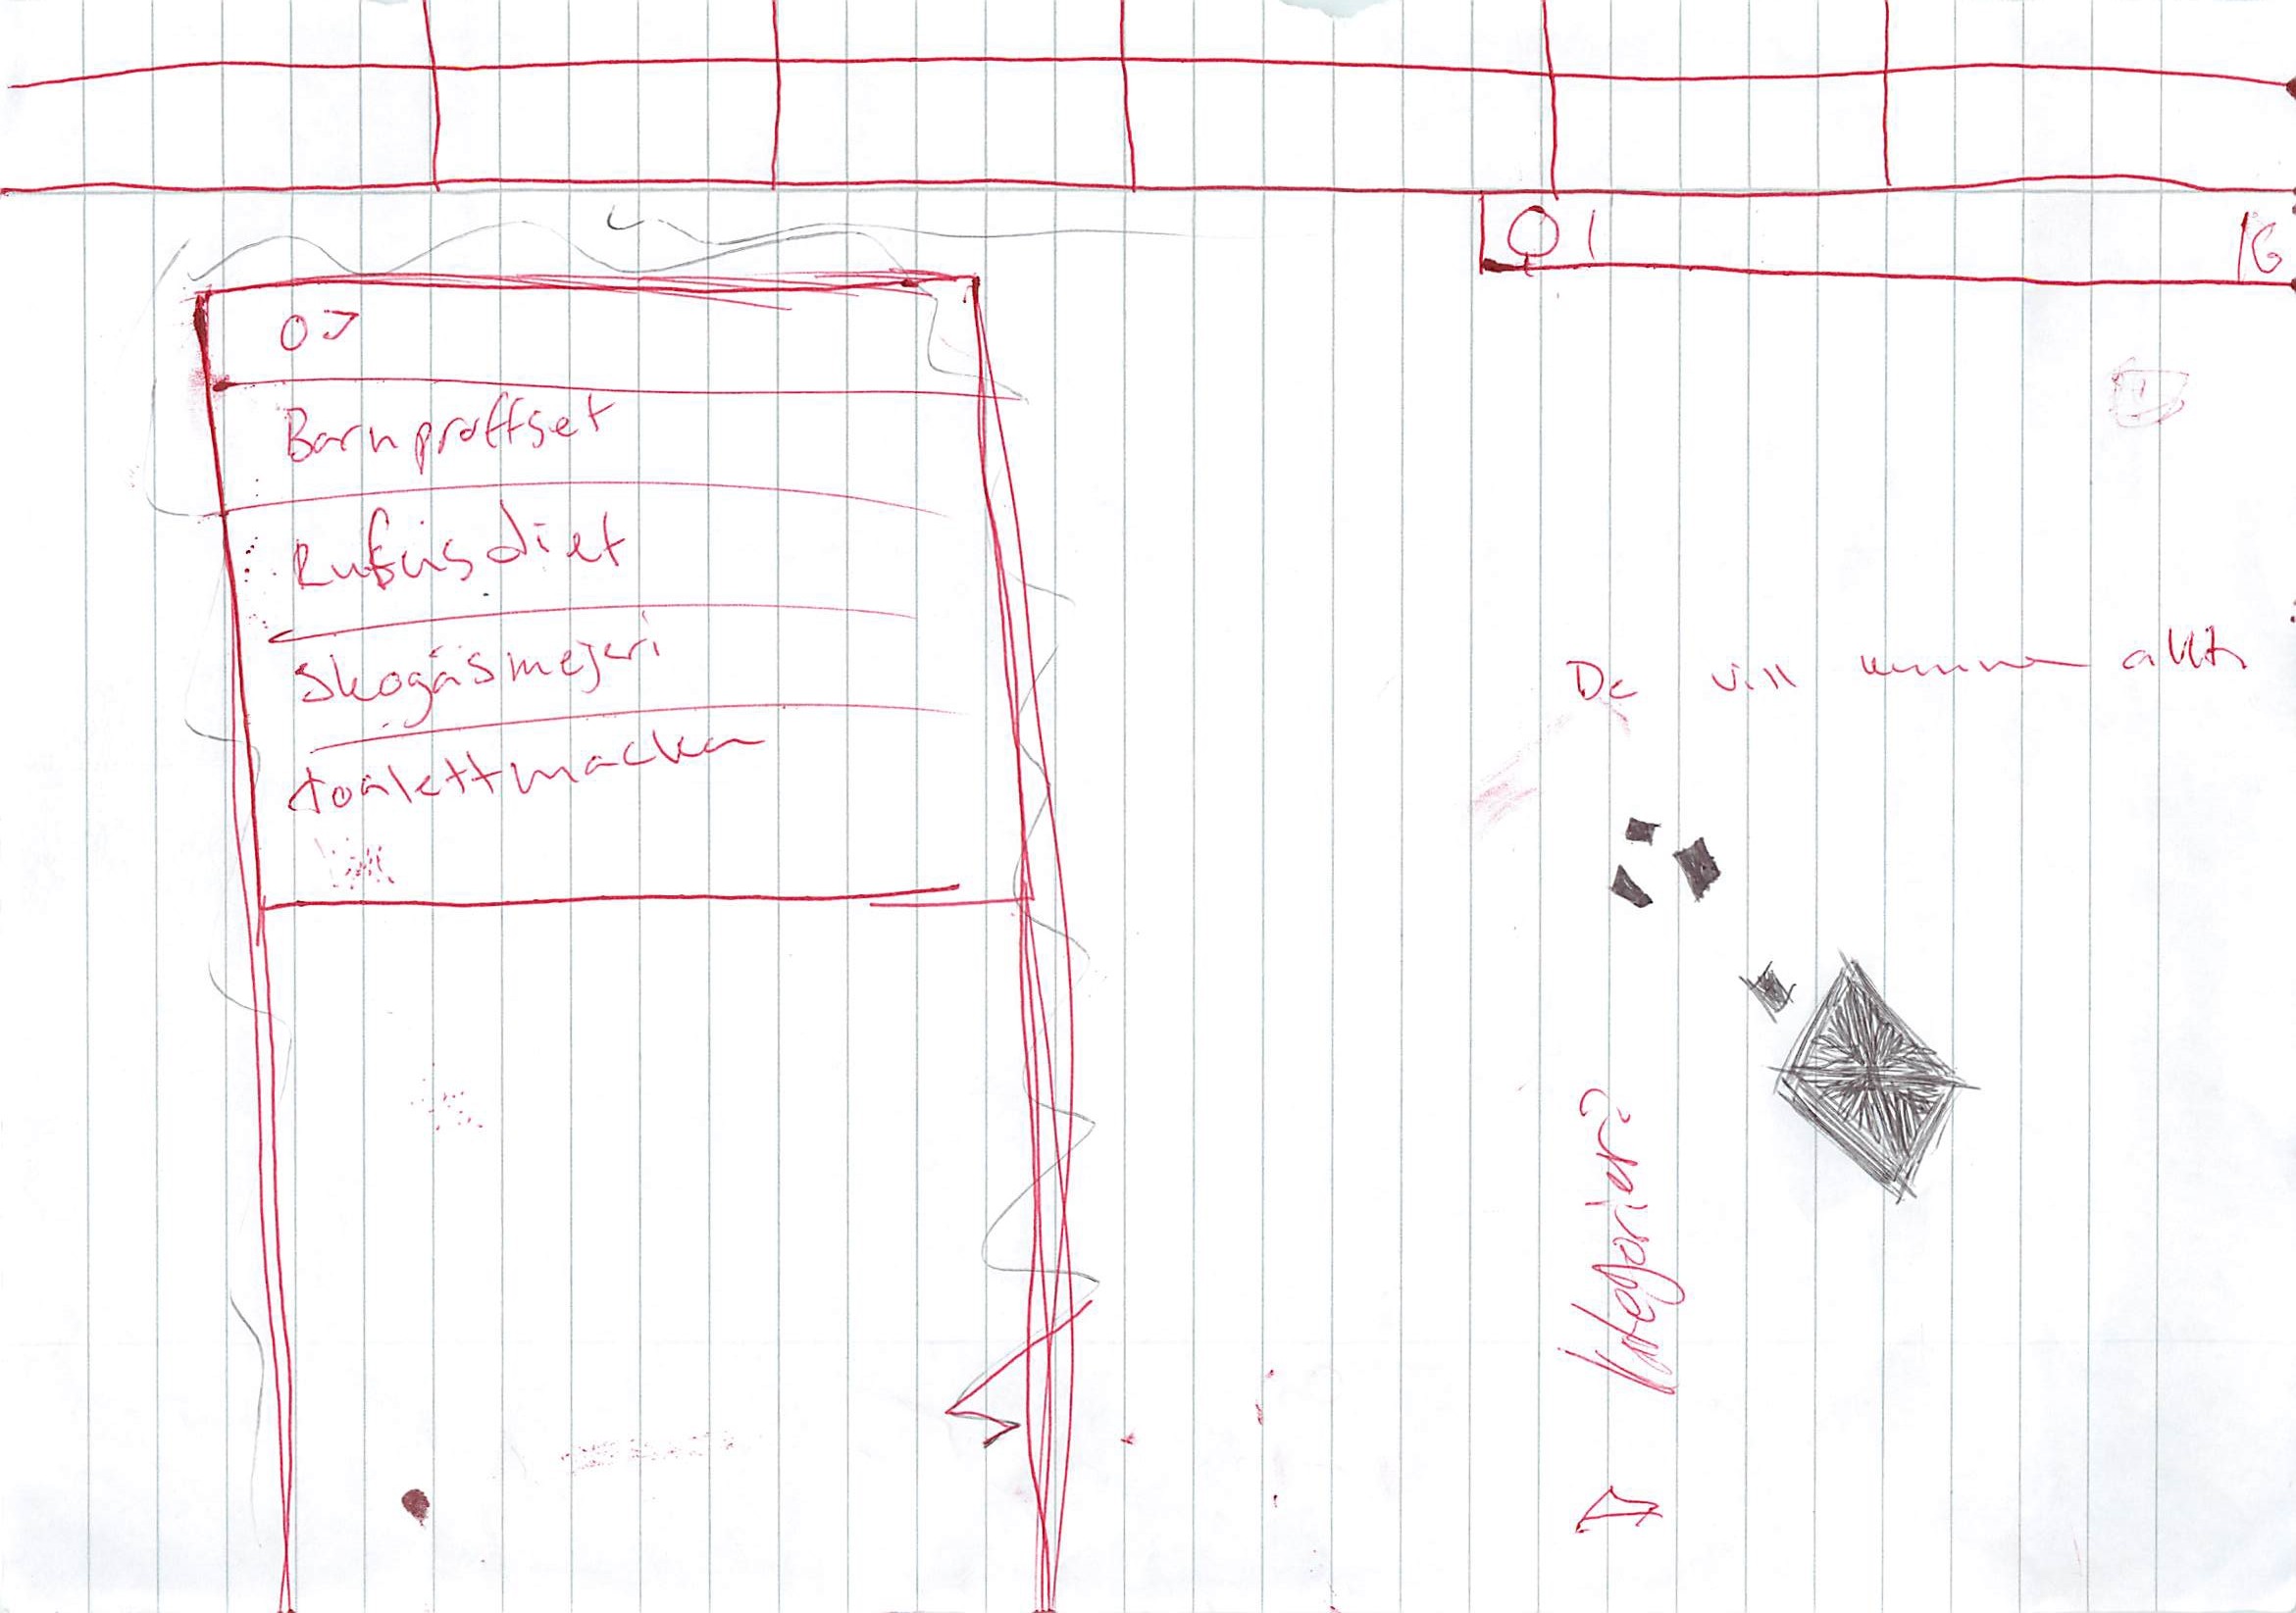 OJ
Barnproffset
Rufusdiet
Skogåsmejeri
toalettmackan
De vill kunna allt
Kategorier?